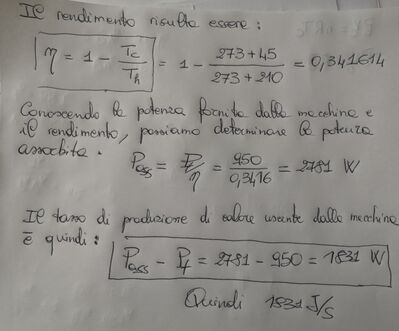 Il rendimento risulta essere:
η = 1 - Tc/Th = 1 - 273+45/273+210 = 0,341614
Conoscendo la potenza fornita dalla macchina e
il rendimento, possiamo determinare la potenza
assorbita. Pass = Pf/η = 950/0,3416 = 2781 W
Il tasso di produzione di calore uscente dalla macchina
è quindi: Pass - Pf = 2781 - 950 = 1831 W
Quindi 1831 J/s